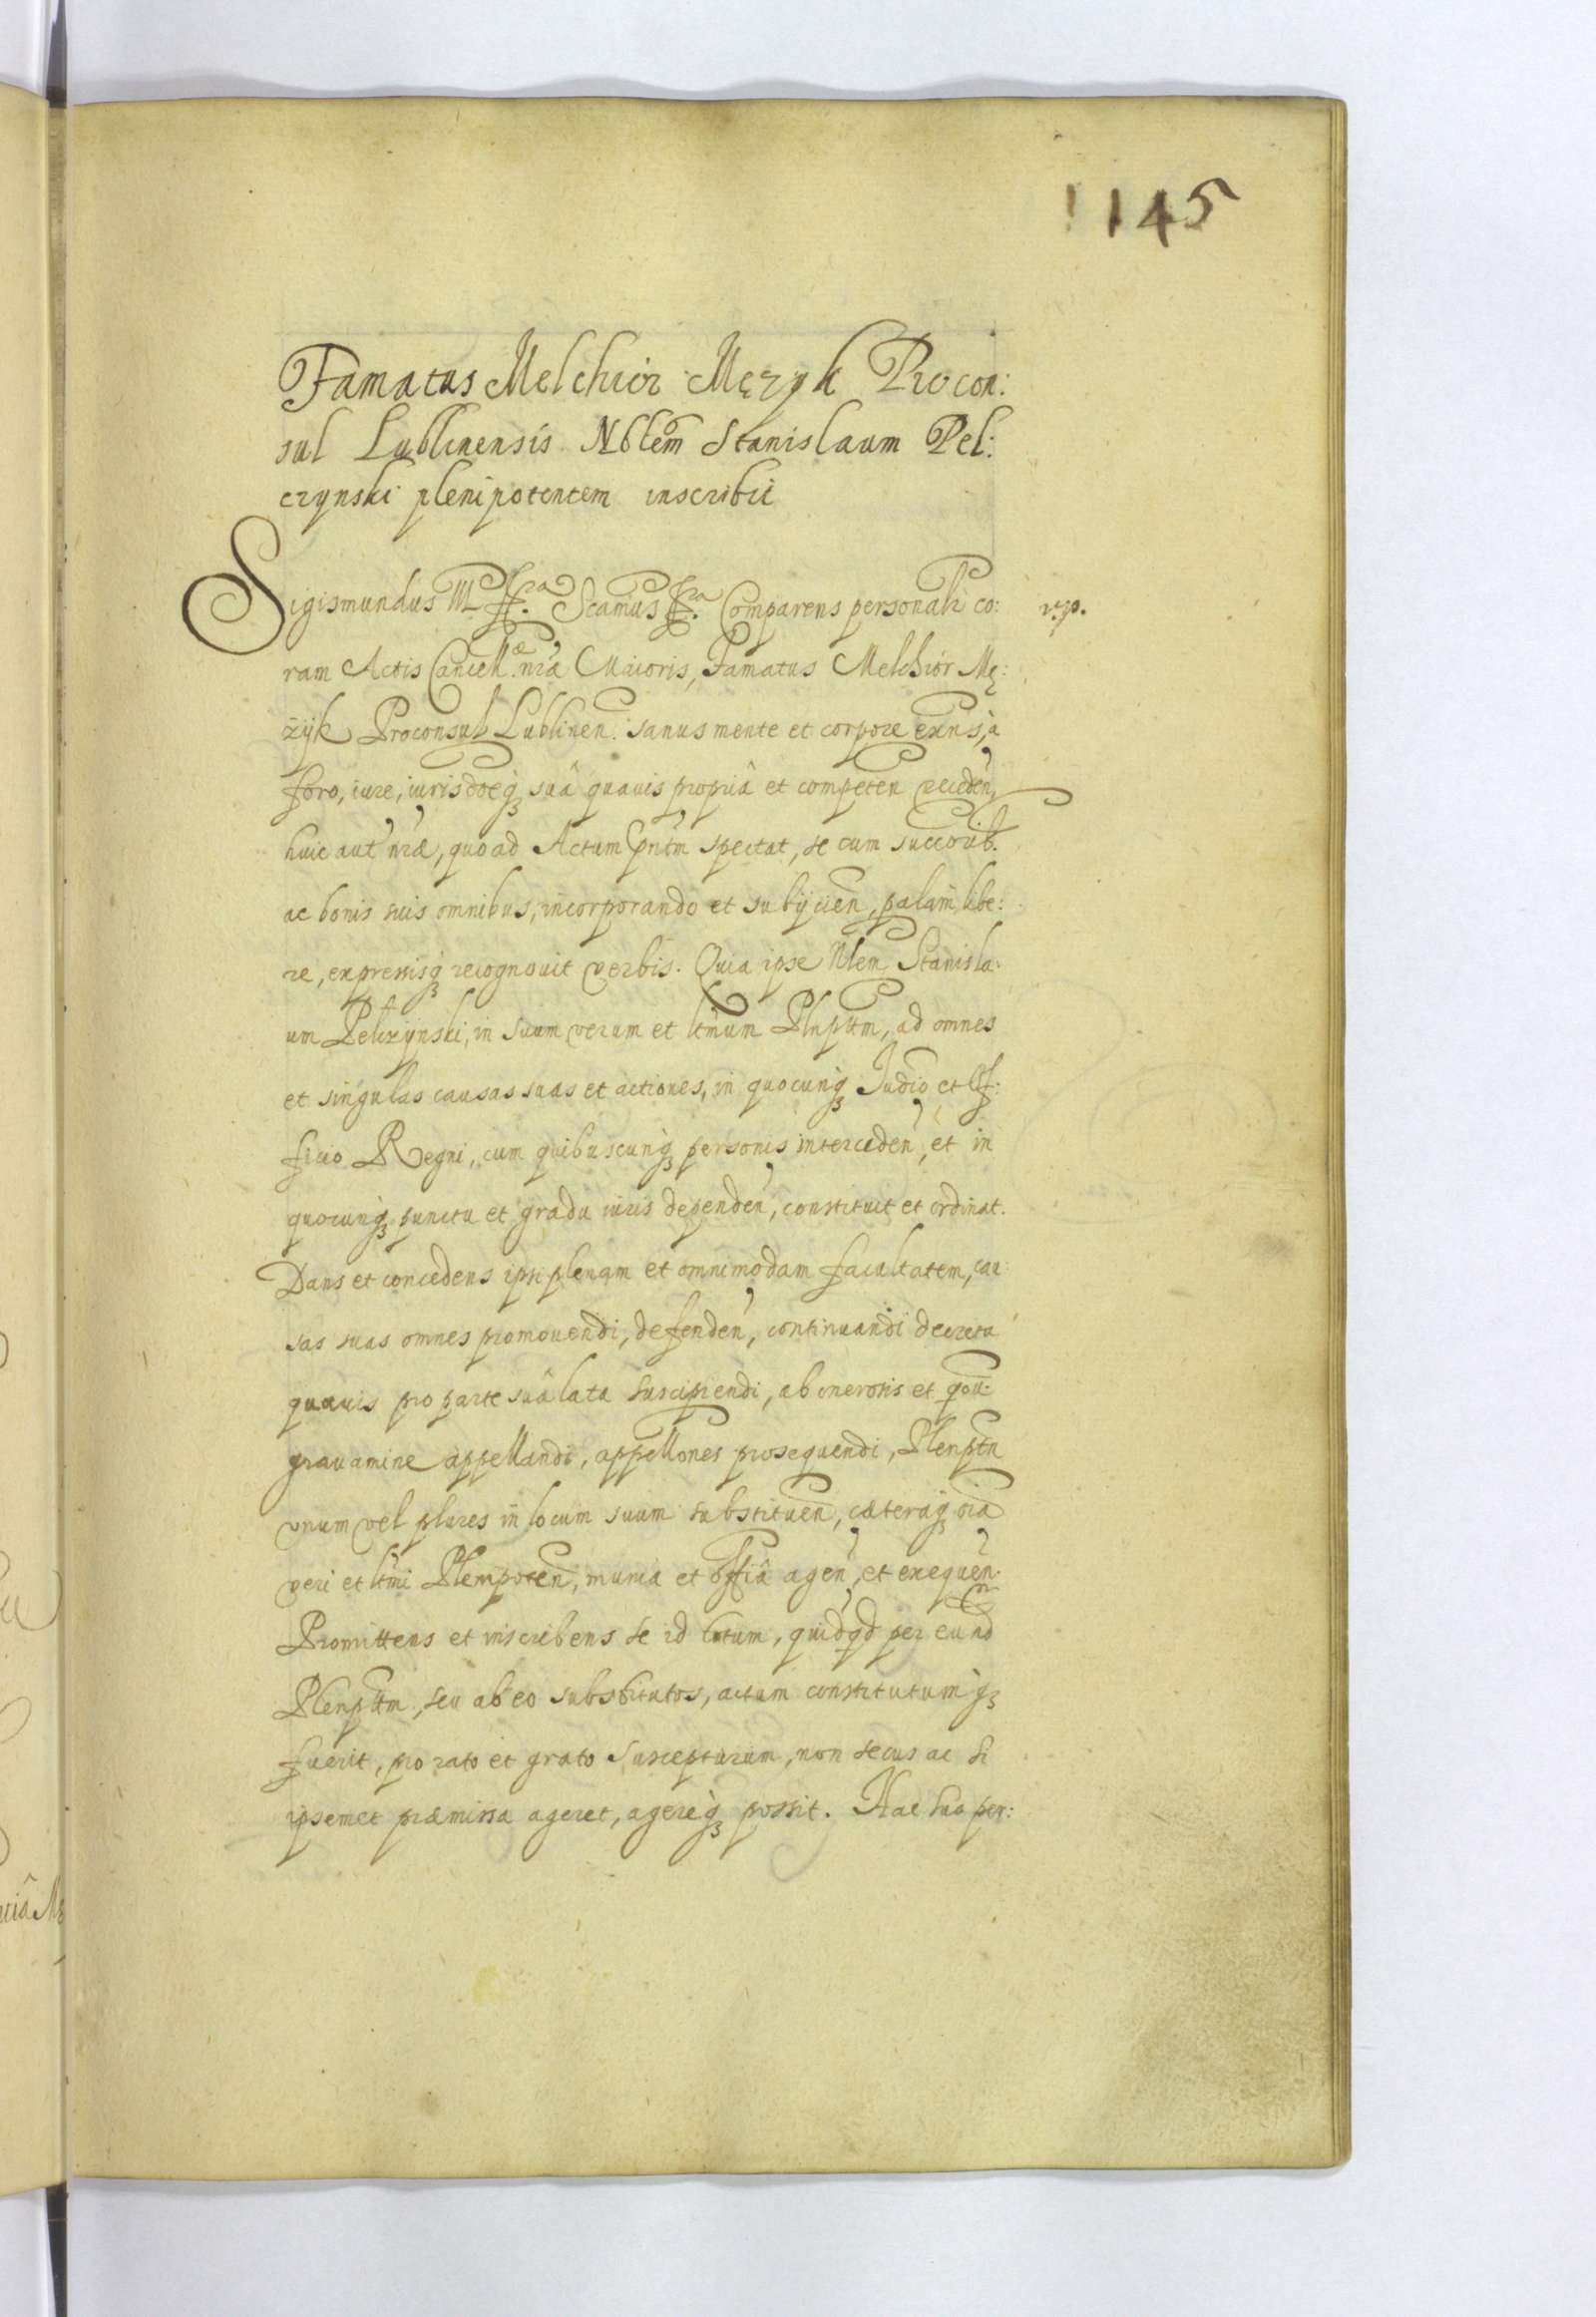 145
Famatus Melchior Męzyk Procon:
sul Lublinensis Nblem Stanislaum Pel:
czynski plenipotentem inscribit
Sigismundus III. Scamus Comparens personalr co:
ram Actis Cancell. nræ Maioris, Famatus Melchior Mę:
zyk Proconsul Lublinen. sanus mente et corpore exns, à
foro, iure, iurisdoeq3 suâ quauis propriâ et competen receden,
huic aut nræ, quo ad Actum pntm spectat, se cum succorib.
ac bonis suis omnibus, incorporando et subijcien, palam libe:
re, expressisq3 recognouit verbis. Quia ipse Nblem Stanisla:
um Pelczynski, in suum verum et ltmum Plnptm, ad omnes
et singulas causas suas et actiones, in quocunq3 Judio et Of:
ficio Regni, cum quibuscunq3 personis interceden, et in
quocunq3 punctu et gradu iuris dependen, constituit et ordinat.
Dans et concedens ipsi plenam et omnimodam facultatem, cau:
sas suas omnes promouendi, defenden, continuandi decreta
quauis pro parte suâ lata suscipiendi, ab onerosis et qou:
grauamine appellandi, appellones prosequendi, Plenptn
vnum vel plures in locum suum substituen, cæteraq3 oia
veri et ltmi Plenipoten, munia et offia agen, et exequen.
Promittens et inscribens se id totum, quidqd per eund
Plenptm, seu ab eo substitutos, actum constitutumq3
fuerit, pro rato et grato suscepturum, non secus ac si
ipsemet præmissa ageret, agereq3 possit. Hac sua per: